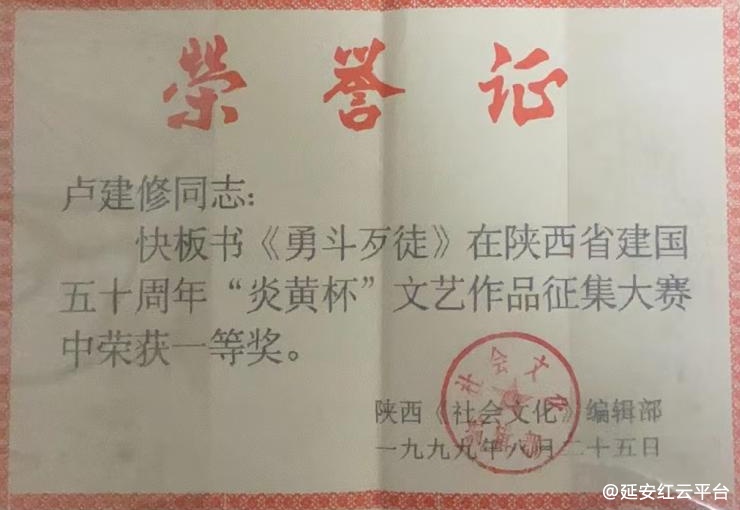 荣誉证
卢建修同志:
快板书《勇斗歹徒》在陕西省建国
五十周年“炎黄杯”文艺作品征集大赛
中荣获一等奖。
社会文化
编辑部
陕西《社会文化》编辑部
一九九九年八月二十五日
@延安红云平台